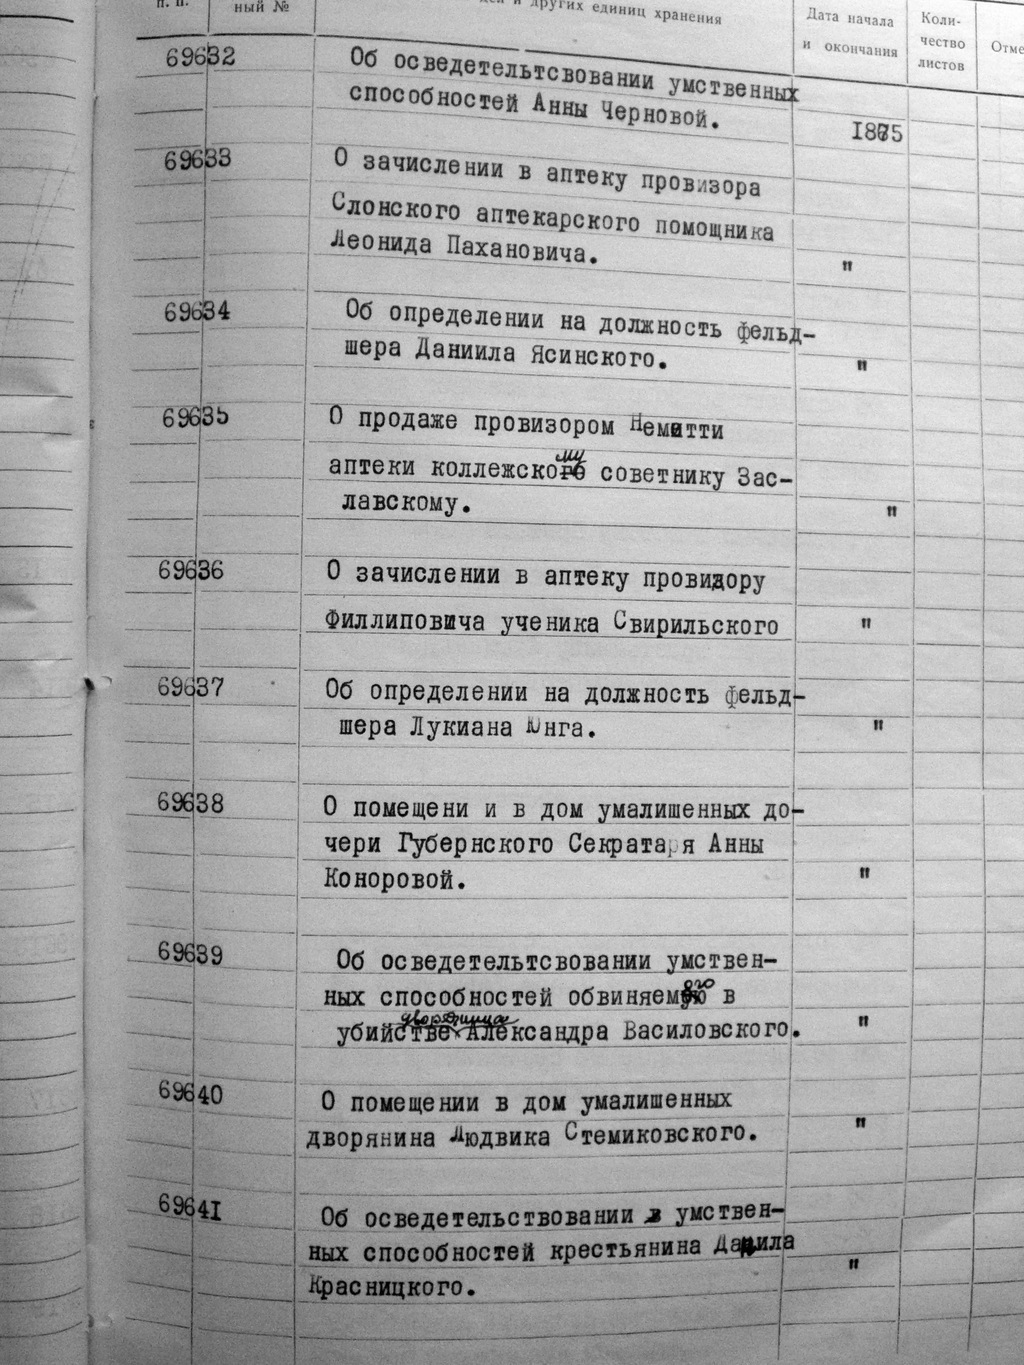 п. п.
ный №
дел и других единиц хранения
Дата начала
и окончания
Коли-
чество
листов
Отме
69632
Об осведетельтсвовании умственных
способностей Анны Черновой.
1875
69633
О зачислении в аптеку провизора
Слонского аптекарского помощника
Леонида Пахановича.
"
69634
Об определении на должность фельд-
шера Даниила Ясинского.
"
69635
О продаже провизором Неметти
аптеки коллежскому советнику Зас-
лавскому.
"
69636
О зачислении в аптеку провизору
Филлиповича ученика Свирильского
"
69637
Об определении на должность фельд-
шера Лукиана Юнга.
"
69638
О помещени и в дом умалишенных до-
чери Губернского Секратаря Анны
Коноровой.
"
69639
Об осведетельтсвовании умствен-
ных способностей обвиняемого в
дворянина
убийстве Александра Василовского.
"
69640
О помещении в дом умалишенных
дворянина Людвика Стемиковского.
"
69641
Об осведетельствовании умствен-
ных способностей крестьянина Данила
Красницкого.
"